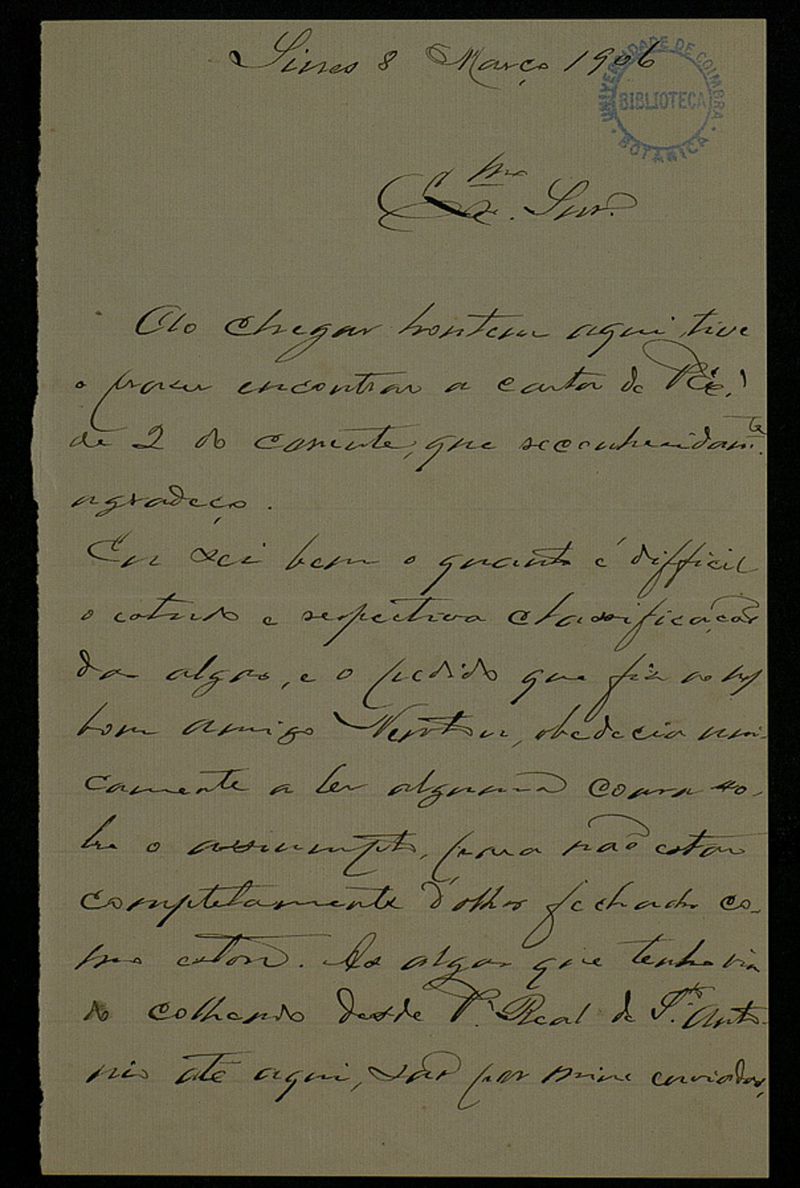 Sines 8 Março 1906
UNIVERSIDADE DE COIMBRA
BIBLIOTECA
BOTANICA
Exmo. Snr.
Ao chegar hontem aqui tive
o praser encontrar a carta de V. Ex.ª
de 2 do corrente, que reconhecidamte.
agradeço.
Eu sei bem o quanto é difficil
o estudo e respectiva classificação
das algas, e o pedido que fiz ao
bom amigo Newton, obedecia uni-
camente a ler alguma cousa so-
bre o assumpto, para não estar
completamente d'olhos fechados co-
mo estou. As algas que tenho vin
do colhendo desde V.ª Real de S.to Anto-
nio até aqui, são por mim enviadas,